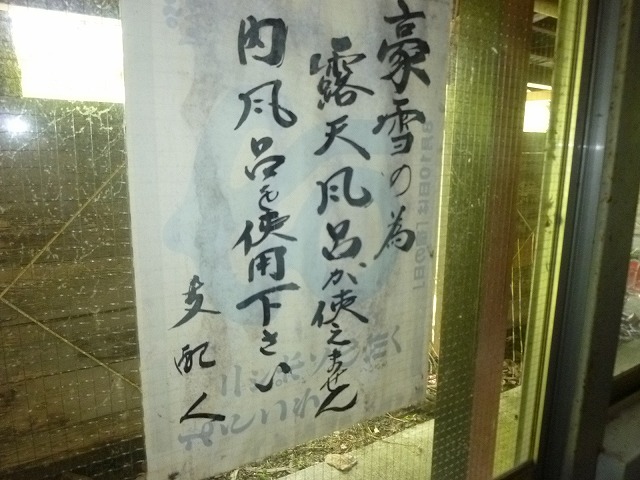 豪雪の為
露天風呂が使えません
内風呂を使用下さい
支配人